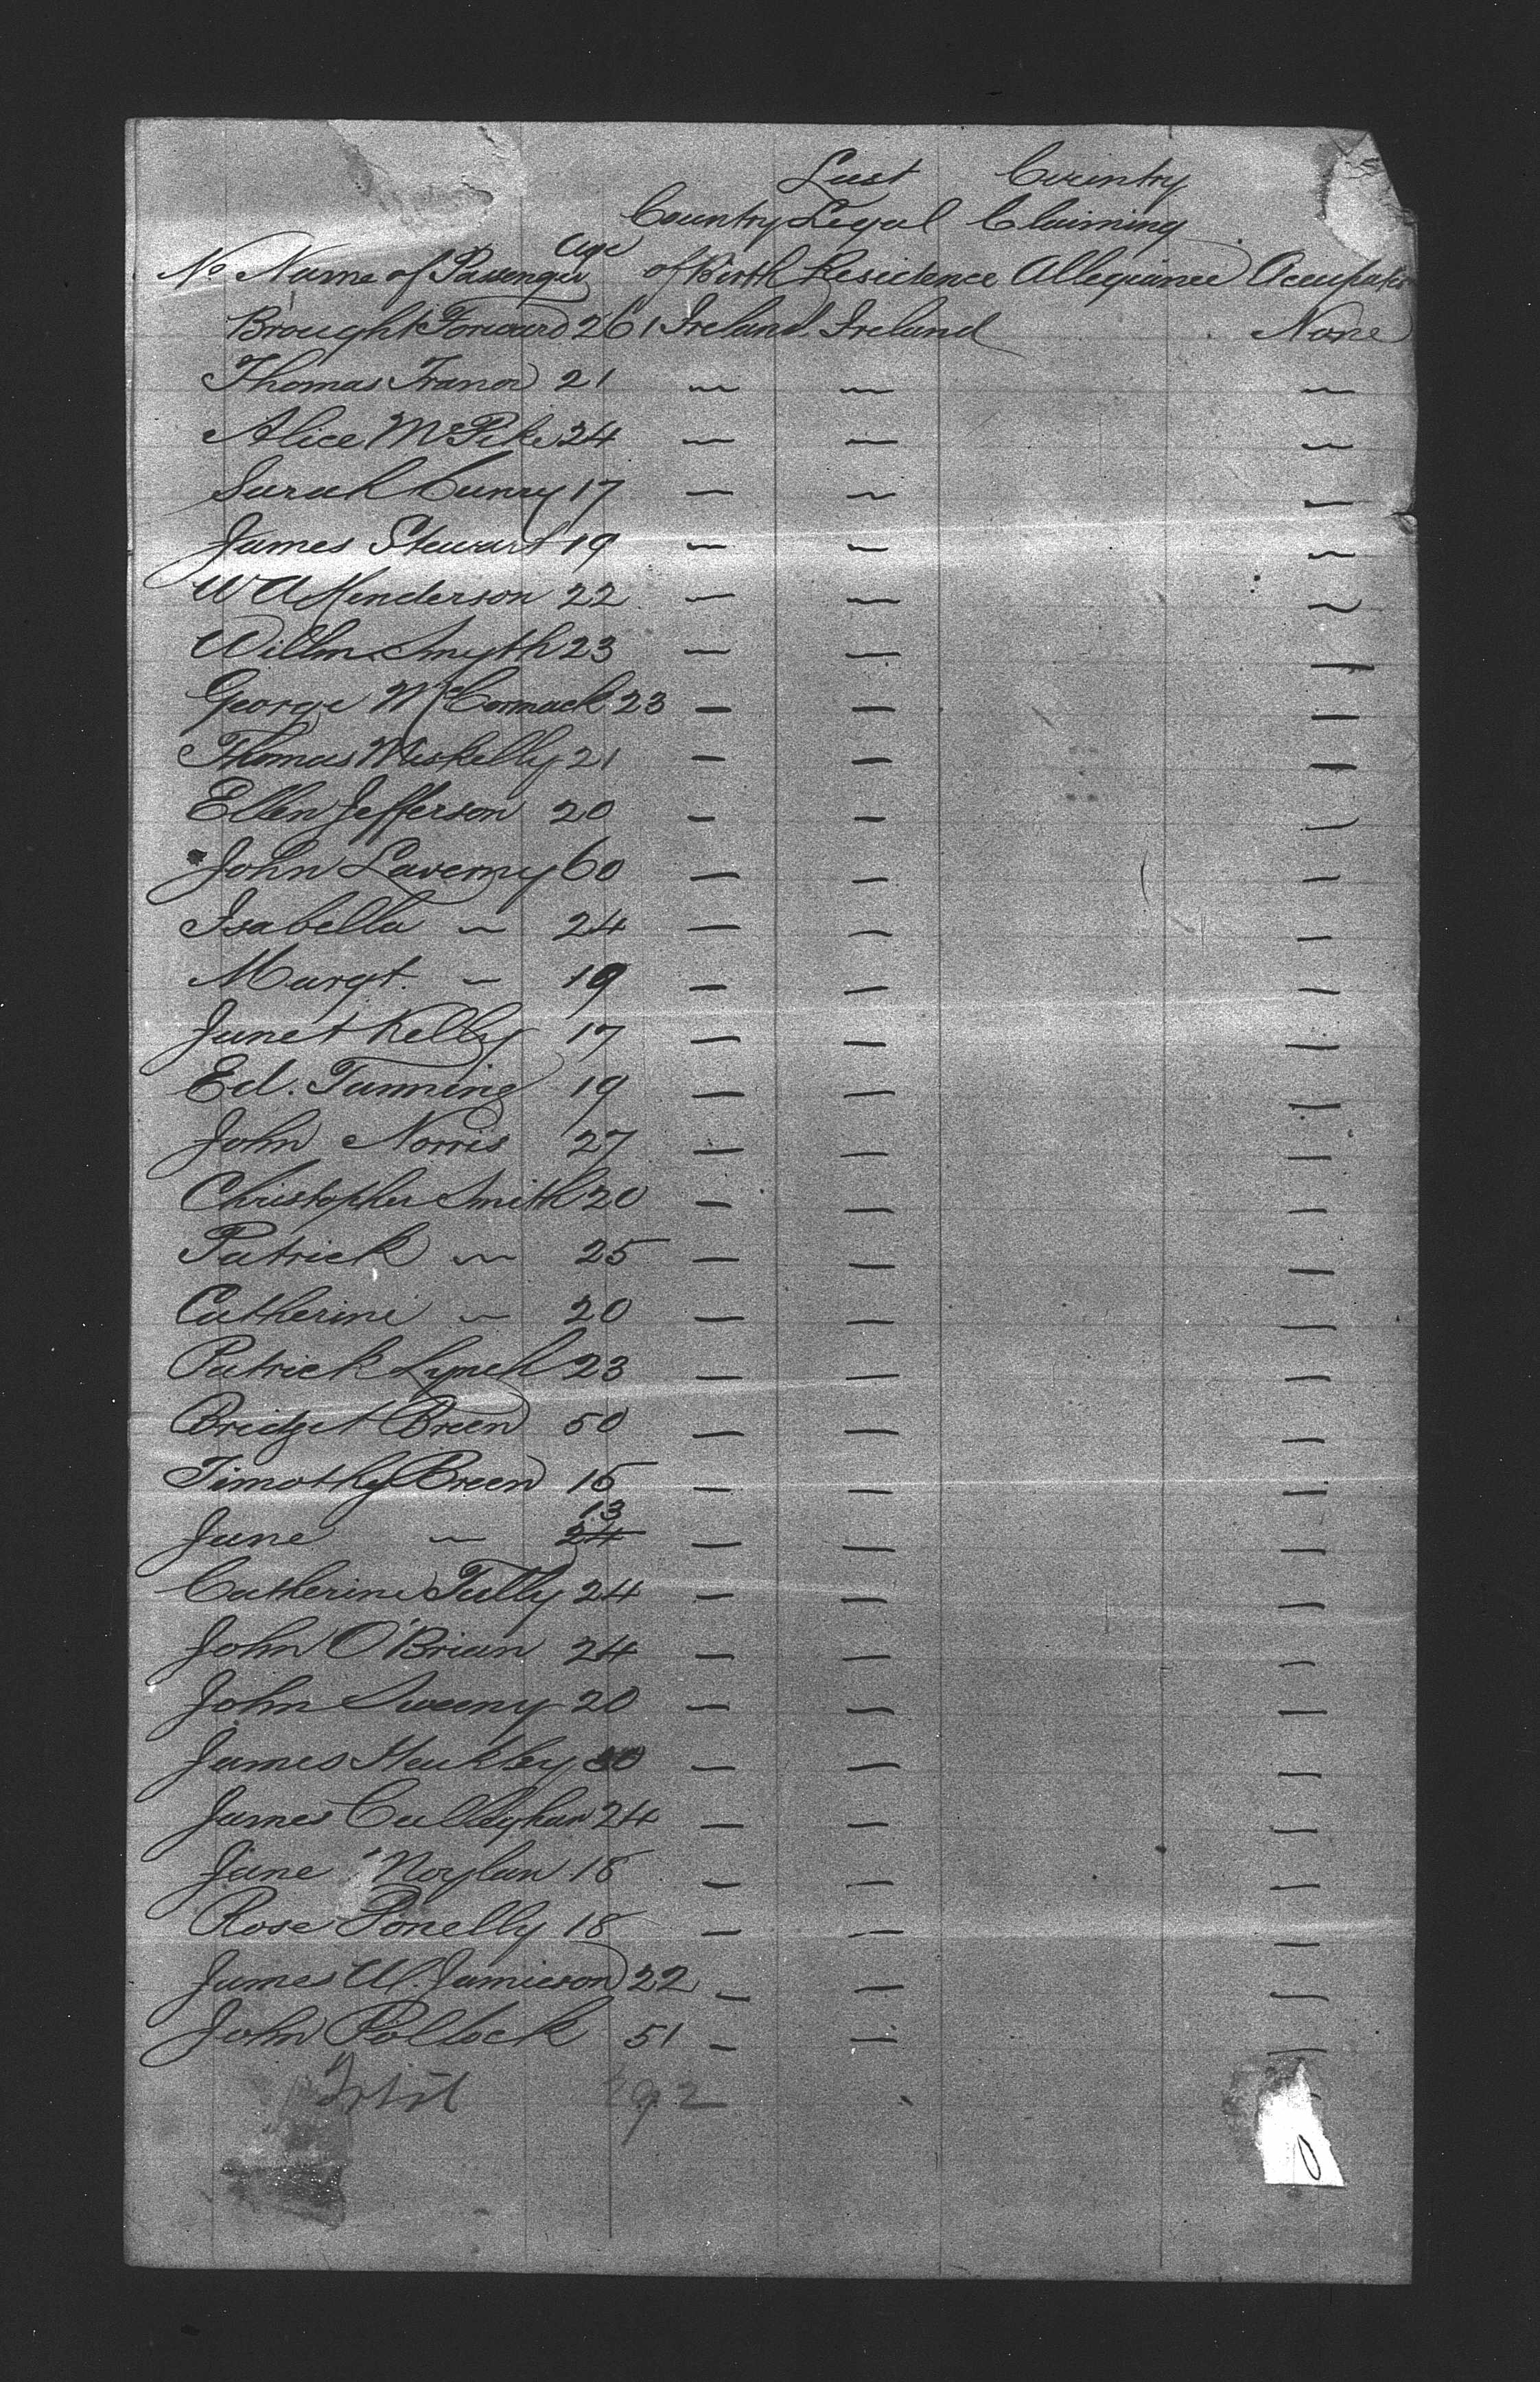 Last Country
Country Legal Claiming
Age
No Name of Passenger of Birth Residence Allegiance Occupation
Brought Forward 261 Ireland Ireland None
Thomas Tranor 21 — — —
Alice McPike 24 — — —
Sarah Cunry 17 — — —
James Stewart 19 — — —
W A Henderson 22 — — —
Willm Smyth 23 — — —
George McCormack 23 — — —
Thomas Miskelly 21 — — —
Ellen Jefferson 20 — — —
John Laverny 60 — — —
Isabella — 24 — — —
Margt. — 19 — — —
Janet Kelly 17 — — —
Ed. Tanning 19 — — —
John Norris 27 — — —
Christopher Smith 20 — — —
Patrick — 25 — — —
Catherine — 20 — — —
Patrick Lynch 23 — — —
Bridget Breen 50 — — —
Timothy Breen 15 — — —
13
Jane — 24 — — —
Catherine Tully 24 — — —
John O'Brian 24 — — —
John Sweeny 20 — — —
James — — —
James Callaghan 24 — — —
Jane Noylan 18 — — —
Rose Donelly 18 — — —
James W. Jamieson 22 — — —
John Pollock 51 — — —
Total 292
0